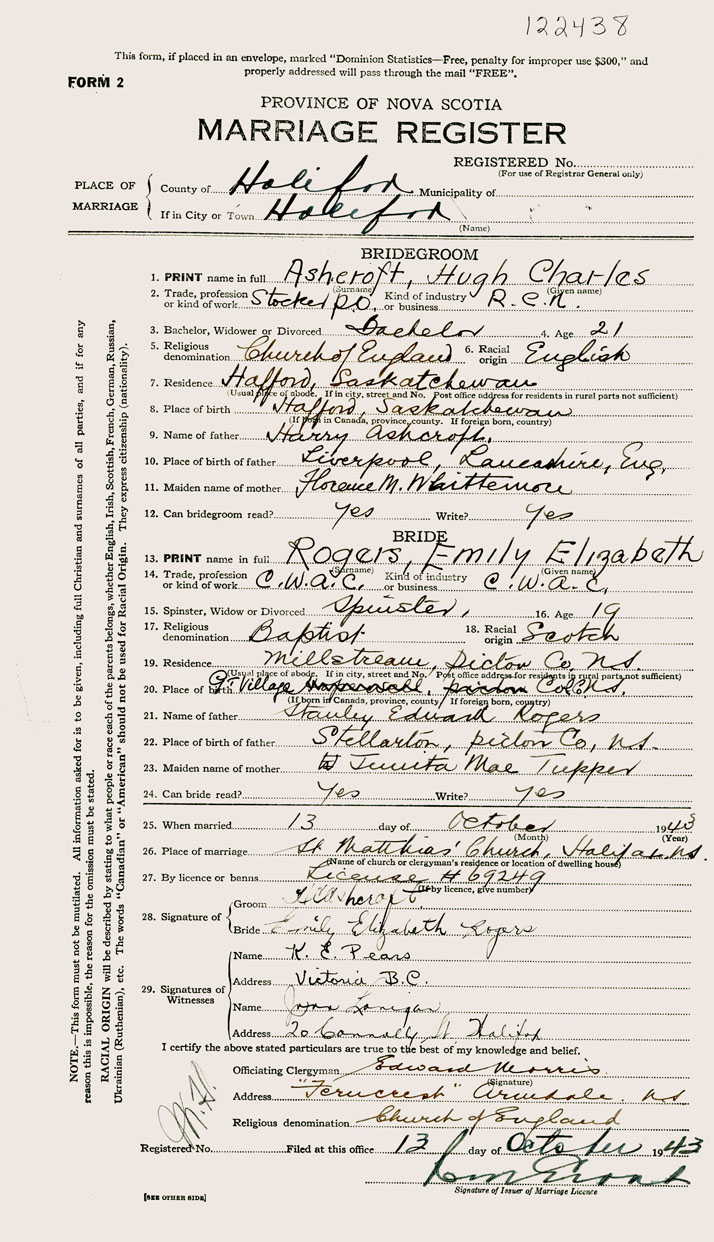 122438
This form, if placed in an envelope, marked "Dominion Statistics—Free, penalty for improper use $300," and
properly addressed will pass through the mail "FREE".
FORM 2
PROVINCE OF NOVA SCOTIA
MARRIAGE REGISTER
REGISTERED No.
(For use of Registrar General only)
PLACE OF MARRIAGE
County of Halifax Municipality of
If in City or Town Halifax
(Name)
BRIDEGROOM
1. PRINT name in full Ashcroft, Hugh Charles
(Surname) (Given name)
2. Trade, profession or kind of work Stocker P.O. Kind of industry or business R.C.N.
3. Bachelor, Widower or Divorced Bachelor 4. Age 21
5. Religious denomination Church of England 6. Racial origin English
7. Residence Hafford, Saskatchewan
(Usual place of abode. If in city, street and No. Post office address for residents in rural parts not sufficient)
8. Place of birth Hafford, Saskatchewan
(If born in Canada, province, county. If foreign born, country)
9. Name of father Harry Ashcroft.
10. Place of birth of father Liverpool, Lancashire, Eng.
11. Maiden name of mother Florence M. Whittemore
12. Can bridegroom read? Yes Write? Yes
BRIDE
13. PRINT name in full Rogers, Emily Elizabeth
(Surname) (Given name)
14. Trade, profession or kind of work C.W.A.C. Kind of industry or business C.W.A.C.
15. Spinster, Widow or Divorced Spinster, 16. Age 19
17. Religious denomination Baptist 18. Racial origin Scotch
19. Residence Millstream, Pictou Co, N.S.
(Usual place of abode. If in city, street and No. Post office address for residents in rural parts not sufficient)
20. Place of birth Gt. Village Col. Co. N.S.
(If born in Canada, province, county. If foreign born, country)
21. Name of father Stanley Edward Rogers
22. Place of birth of father Stellarton, Pictou Co, N.S.
23. Maiden name of mother Mae Tupper
24. Can bride read? Yes Write? Yes
25. When married 13 day of October 1943
(Month) (Year)
26. Place of marriage St Matthias' Church, Halifax N.S.
(Name of church or clergyman's residence or location of dwelling house)
27. By licence or banns License # 69249
(If by licence, give number)
28. Signature of
Groom H C Ashcroft
Bride Emily Elizabeth Rogers
29. Signatures of Witnesses
Name K. E. Pears
Address Victoria B.C.
Name Lonegan
Address 20 Connolly St Halifax
I certify the above stated particulars are true to the best of my knowledge and belief.
Officiating Clergyman Edward Morris
(Signature)
Address "Ferncrest" Armdale. N.S
Religious denomination Church of England
Registered No. Filed at this office 13 day of October 1943
Signature of Issuer of Marriage Licence
[SEE OTHER SIDE]
NOTE.—This form must not be mutilated. All information asked for is to be given, including full Christian and surnames of all parties, and if for any
reason this is impossible, the reason for the omission must be stated.
RACIAL ORIGIN will be described by stating to what people or race each of the parents belongs, whether English, Irish, Scottish, French, German, Russian,
Ukrainian (Ruthenian), etc. The words "Canadian" or "American" should not be used for Racial Origin. They express citizenship (nationality).